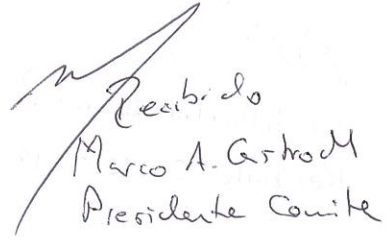 Recibido
Marco A. Castro M
Presidente Comite